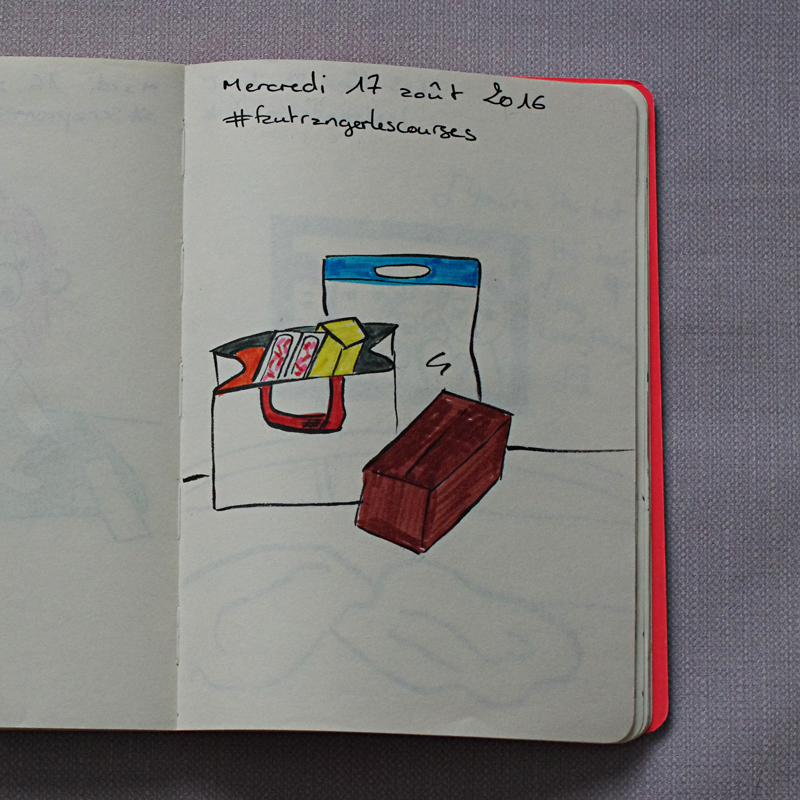 Mercredi 17 août 2016
#fautrangerlescourses